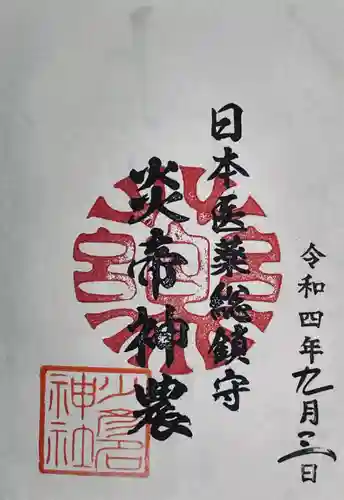 日本医薬総鎮守
炎帝神農
令和四年九月二三日
少彦名
神社